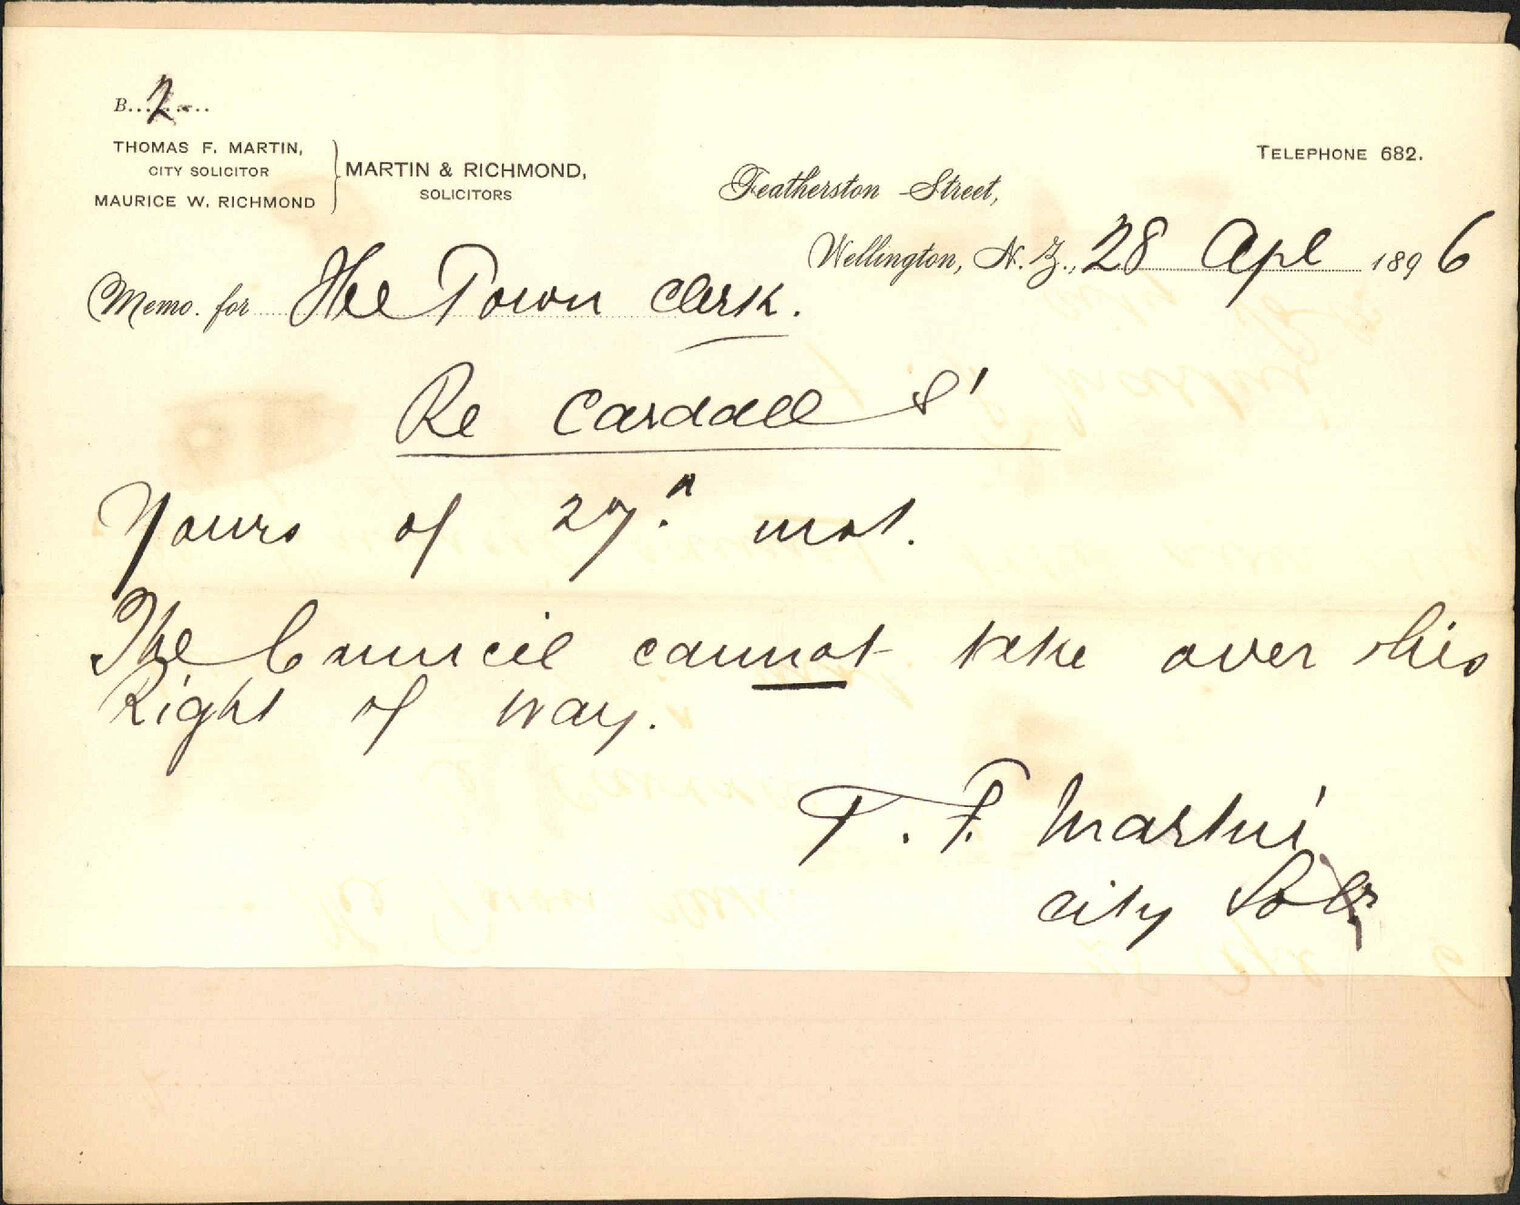 B. 2.
THOMAS F. MARTIN,
CITY SOLICITOR
MAURICE W. RICHMOND
MARTIN & RICHMOND,
SOLICITORS
TELEPHONE 682.
Featherston Street,
Wellington, N.Z., 28 Apl 1896
Memo. for The Town Clerk.
Re Cardall St
Yours of 27th inst.
The Council cannot take over this
Right of way.
T. F. Martin
City Solr